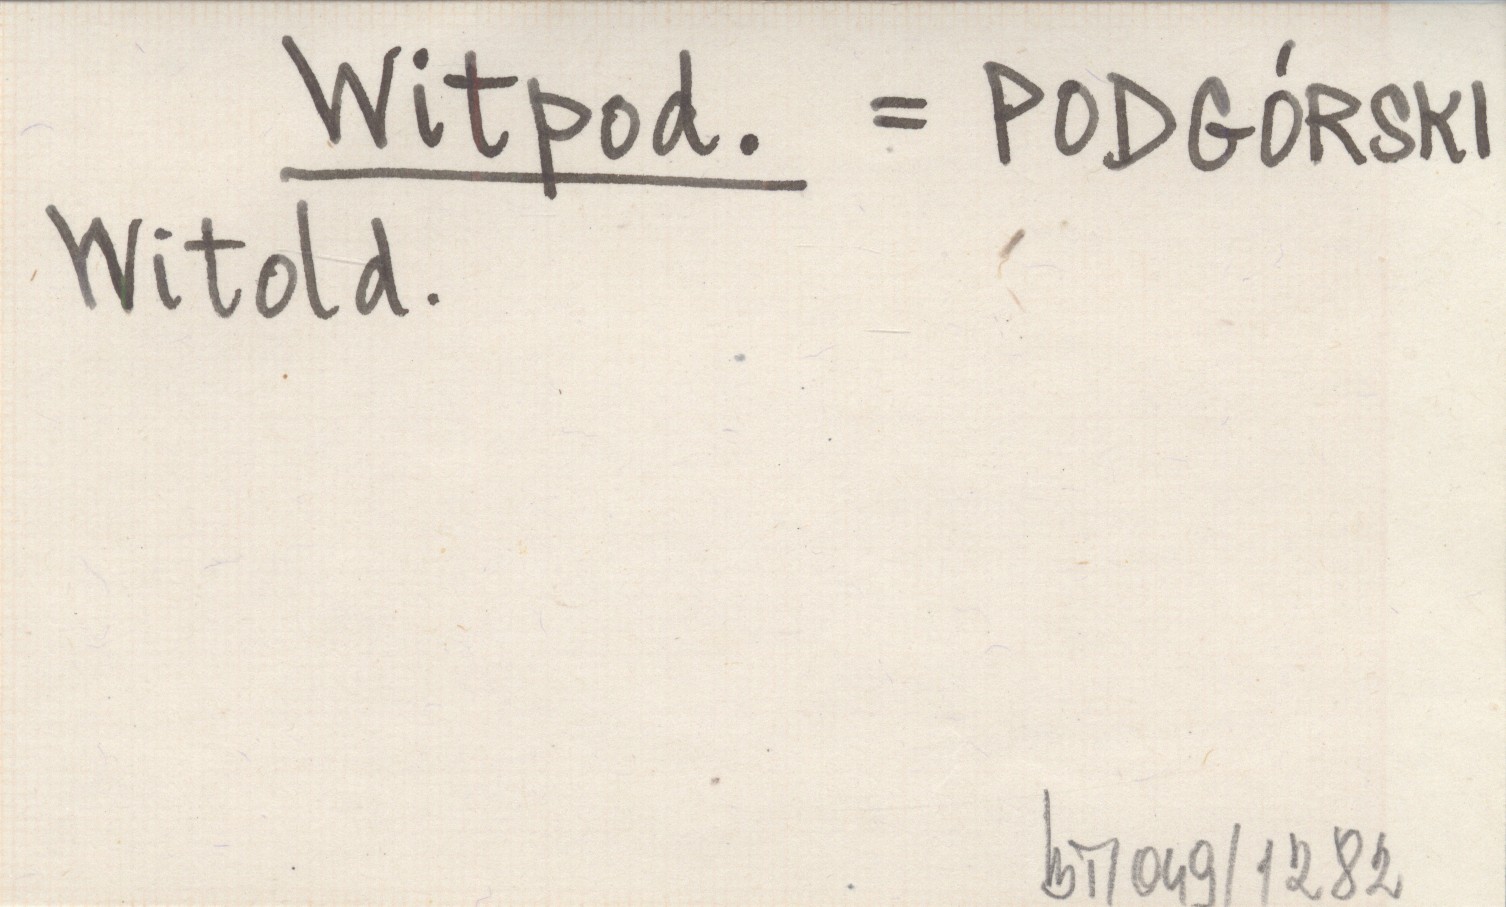 Witpod. = PODGÓRSKI
Witold.
049/1282